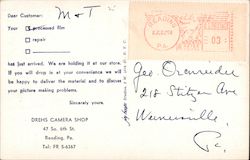 Dear Customer: M & T
Your ☒ processed film
☐ repair
☐
has just arrived. We are holding it at our store.
If you will drop in at your convenience we will
be happy to deliver the material and to discuss
your picture making problems.
Sincerely yours,
DREHS CAMERA SHOP
47 So. 6th St.
Reading, Pa.
Tel: FR 5-6367
READING
PA.
03
Geo.
218 Stitzer Ave
Wernersville,
Pa.